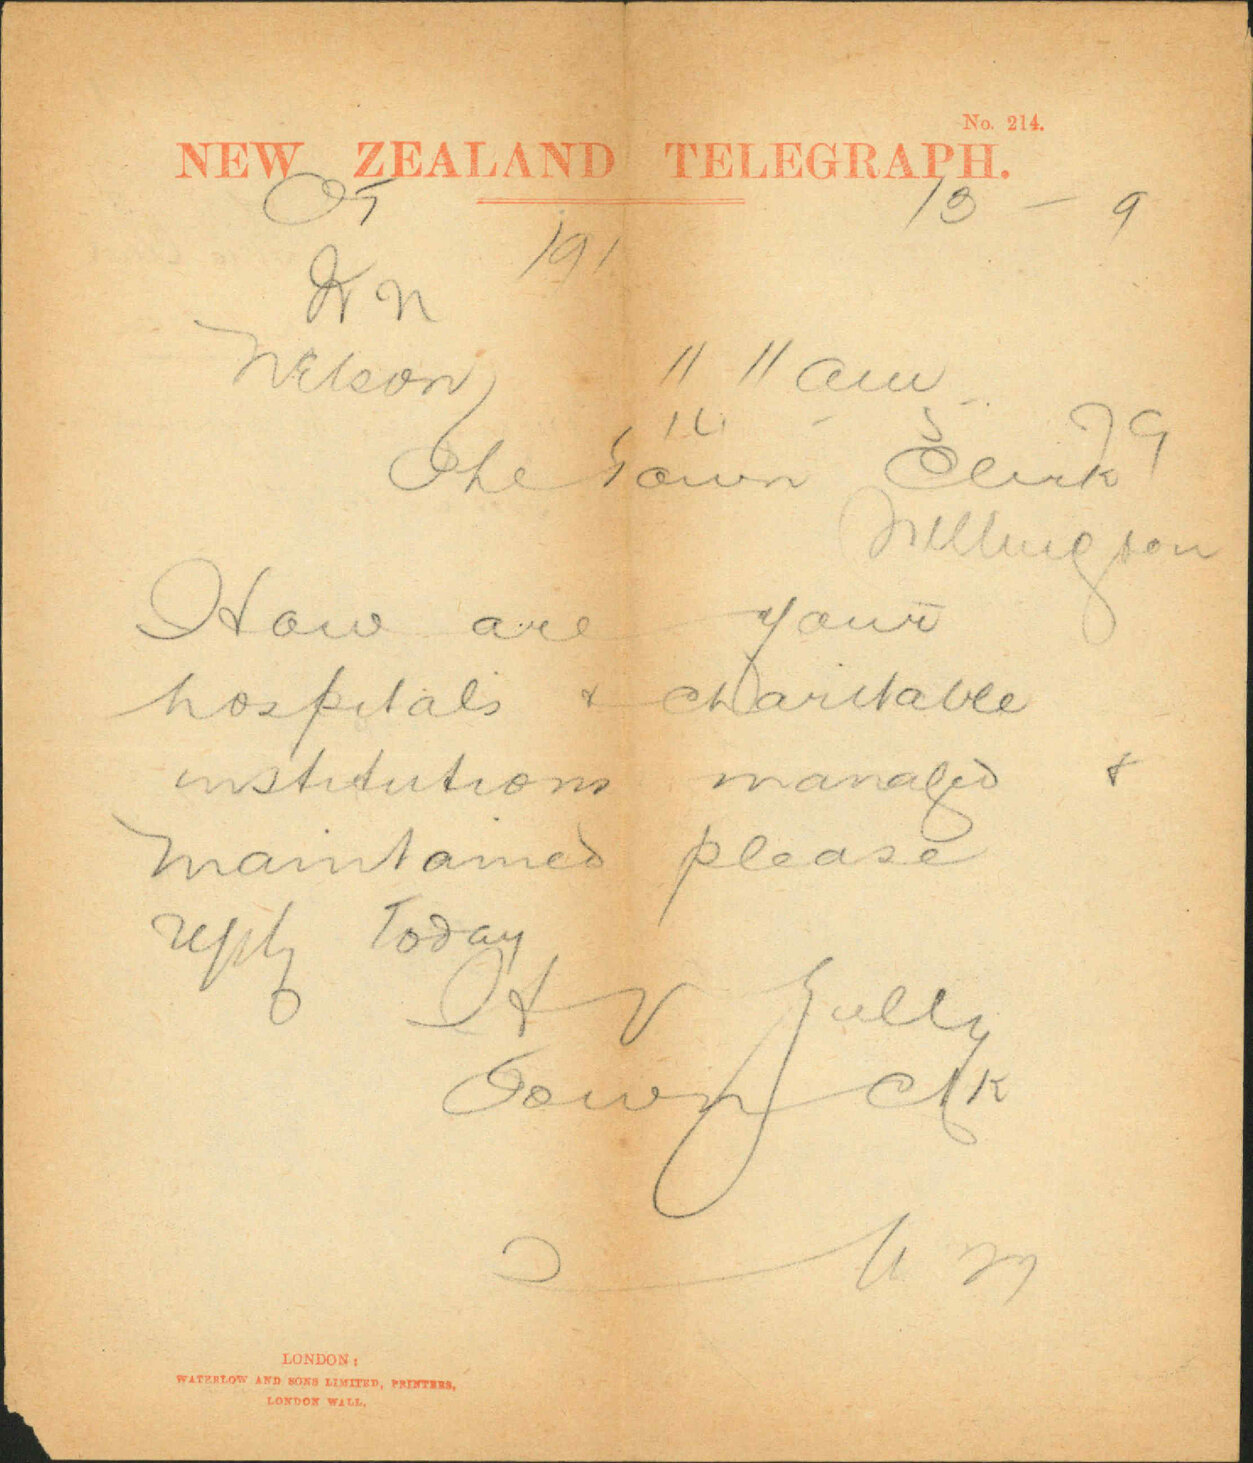 No. 214.
NEW ZEALAND TELEGRAPH.
13 - 9
191
Nelson 11 11 am
The Town Clerk
Wellington
How are your
hospitals & charitable
institutions managed &
maintained please
reply today
H V Gully
Town Clk
LONDON:
WATERLOW AND SONS LIMITED, PRINTERS,
LONDON WALL.